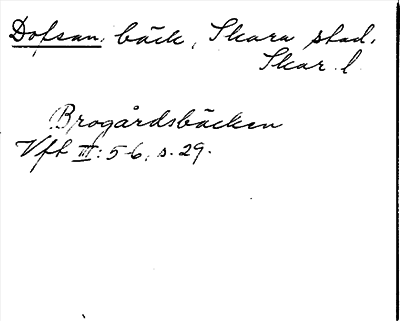 Dofsan, bäck, Skara stad,
Skar. l.
Brogårdsbäcken
Vft III: 5-6, s. 29.